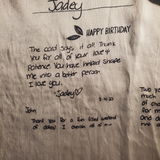 Jadey
HAPPY BIRTHDAY
The card says it all! Thank
You for all of your love &
Patience You have helped Shape
me into a better person
I love you
Jadey
John
Thank you for a fun filled weekend
Two yo
much
of
for